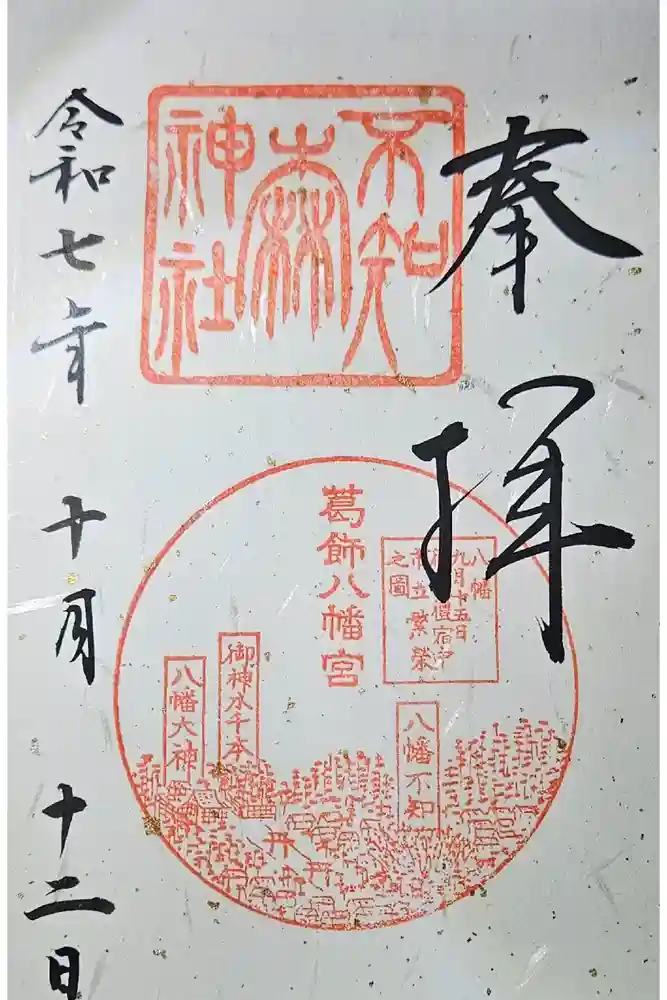 奉拝
不知
森
神社
葛飾八幡宮
八幡
九月十五日
市立繁榮
之圖
八幡不知
御神水千本
八幡大神
令和七年 十月 十二日